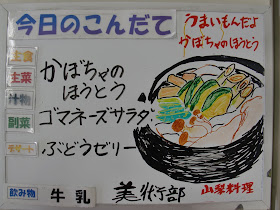 今日のこんだて
うまいもんだよ
かぼちゃのほうとう
主食
主菜
汁物
副菜
デザート
かぼちゃの
ほうとう
ゴマネーズサラダ
ぶどうゼリー
飲み物
牛乳
美術行部
山梨料理